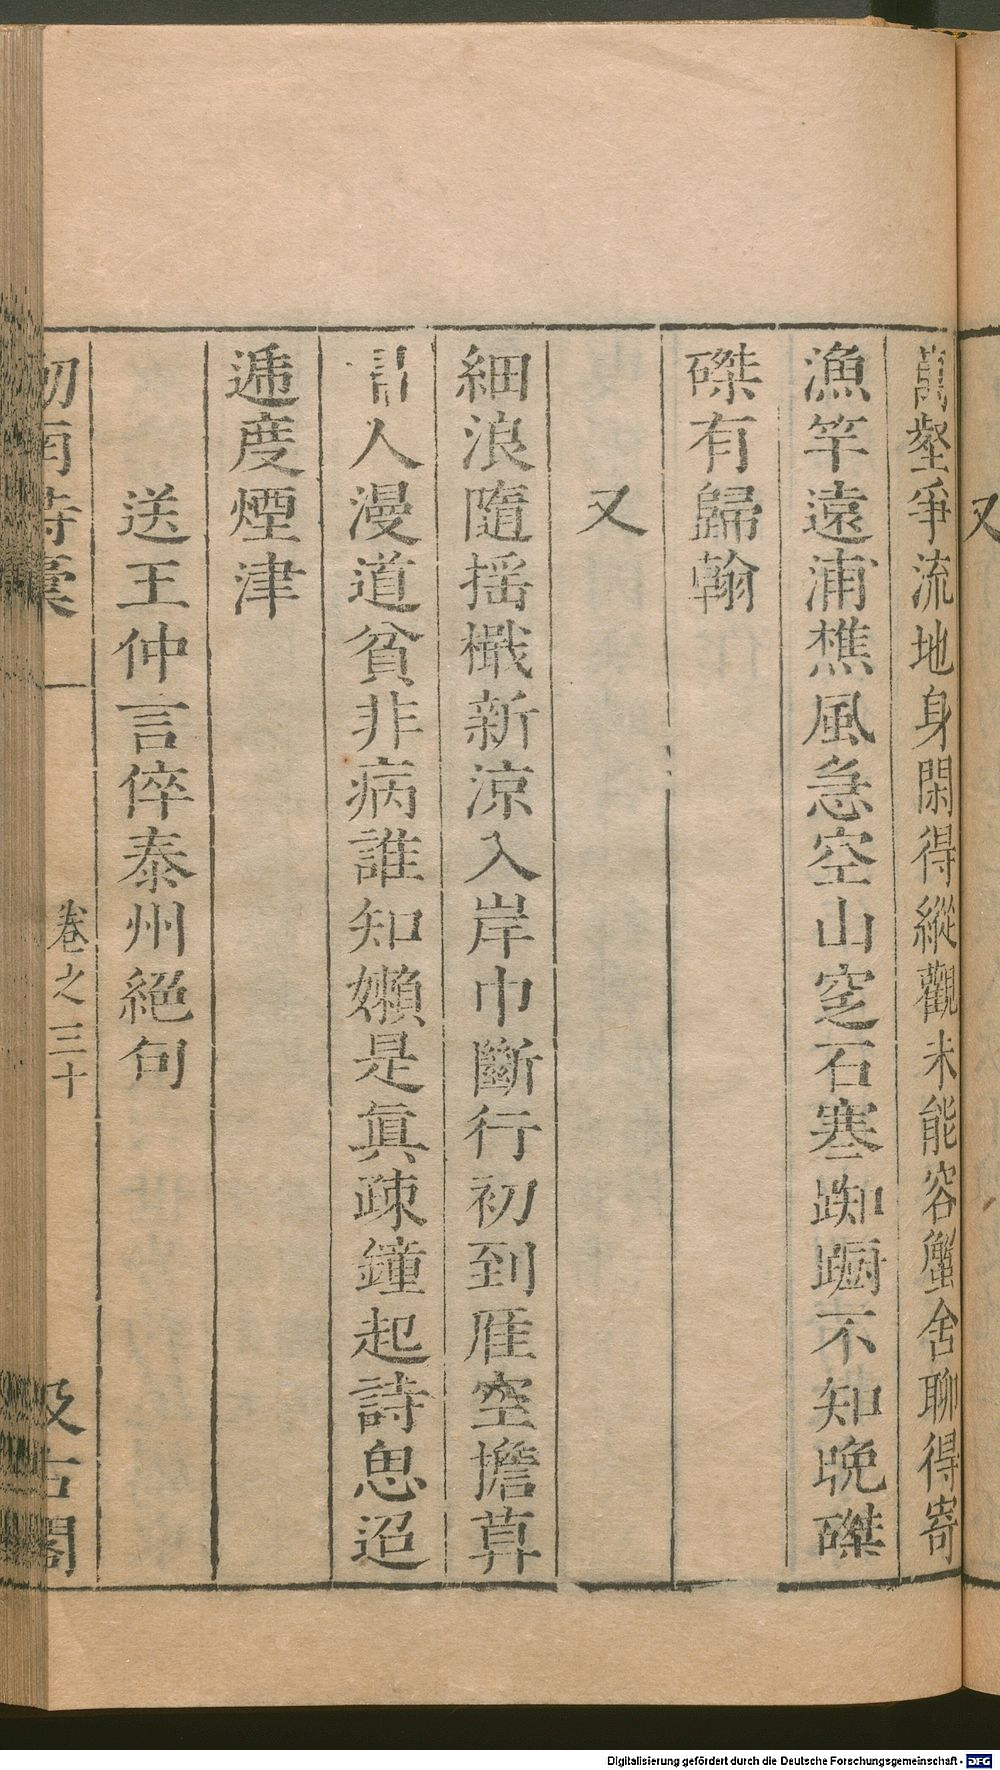 又
萬壑爭流地身閑得縱觀未能容蟹舍聊得寄
漁竿遠浦樵風急空山窆石寒踟躕不知晚磔
磔有歸翰
又
細浪隨搖檝新涼入岸巾斷行初到雁空擔算
人漫道貧非病誰知嬾是眞疎鐘起詩思迢
遞度煙津
送王仲言倅泰州絕句
劒南詩稾 卷之三十 汲古閣
Digitalisierung gefördert durch die Deutsche Forschungsgemeinschaft - DFG